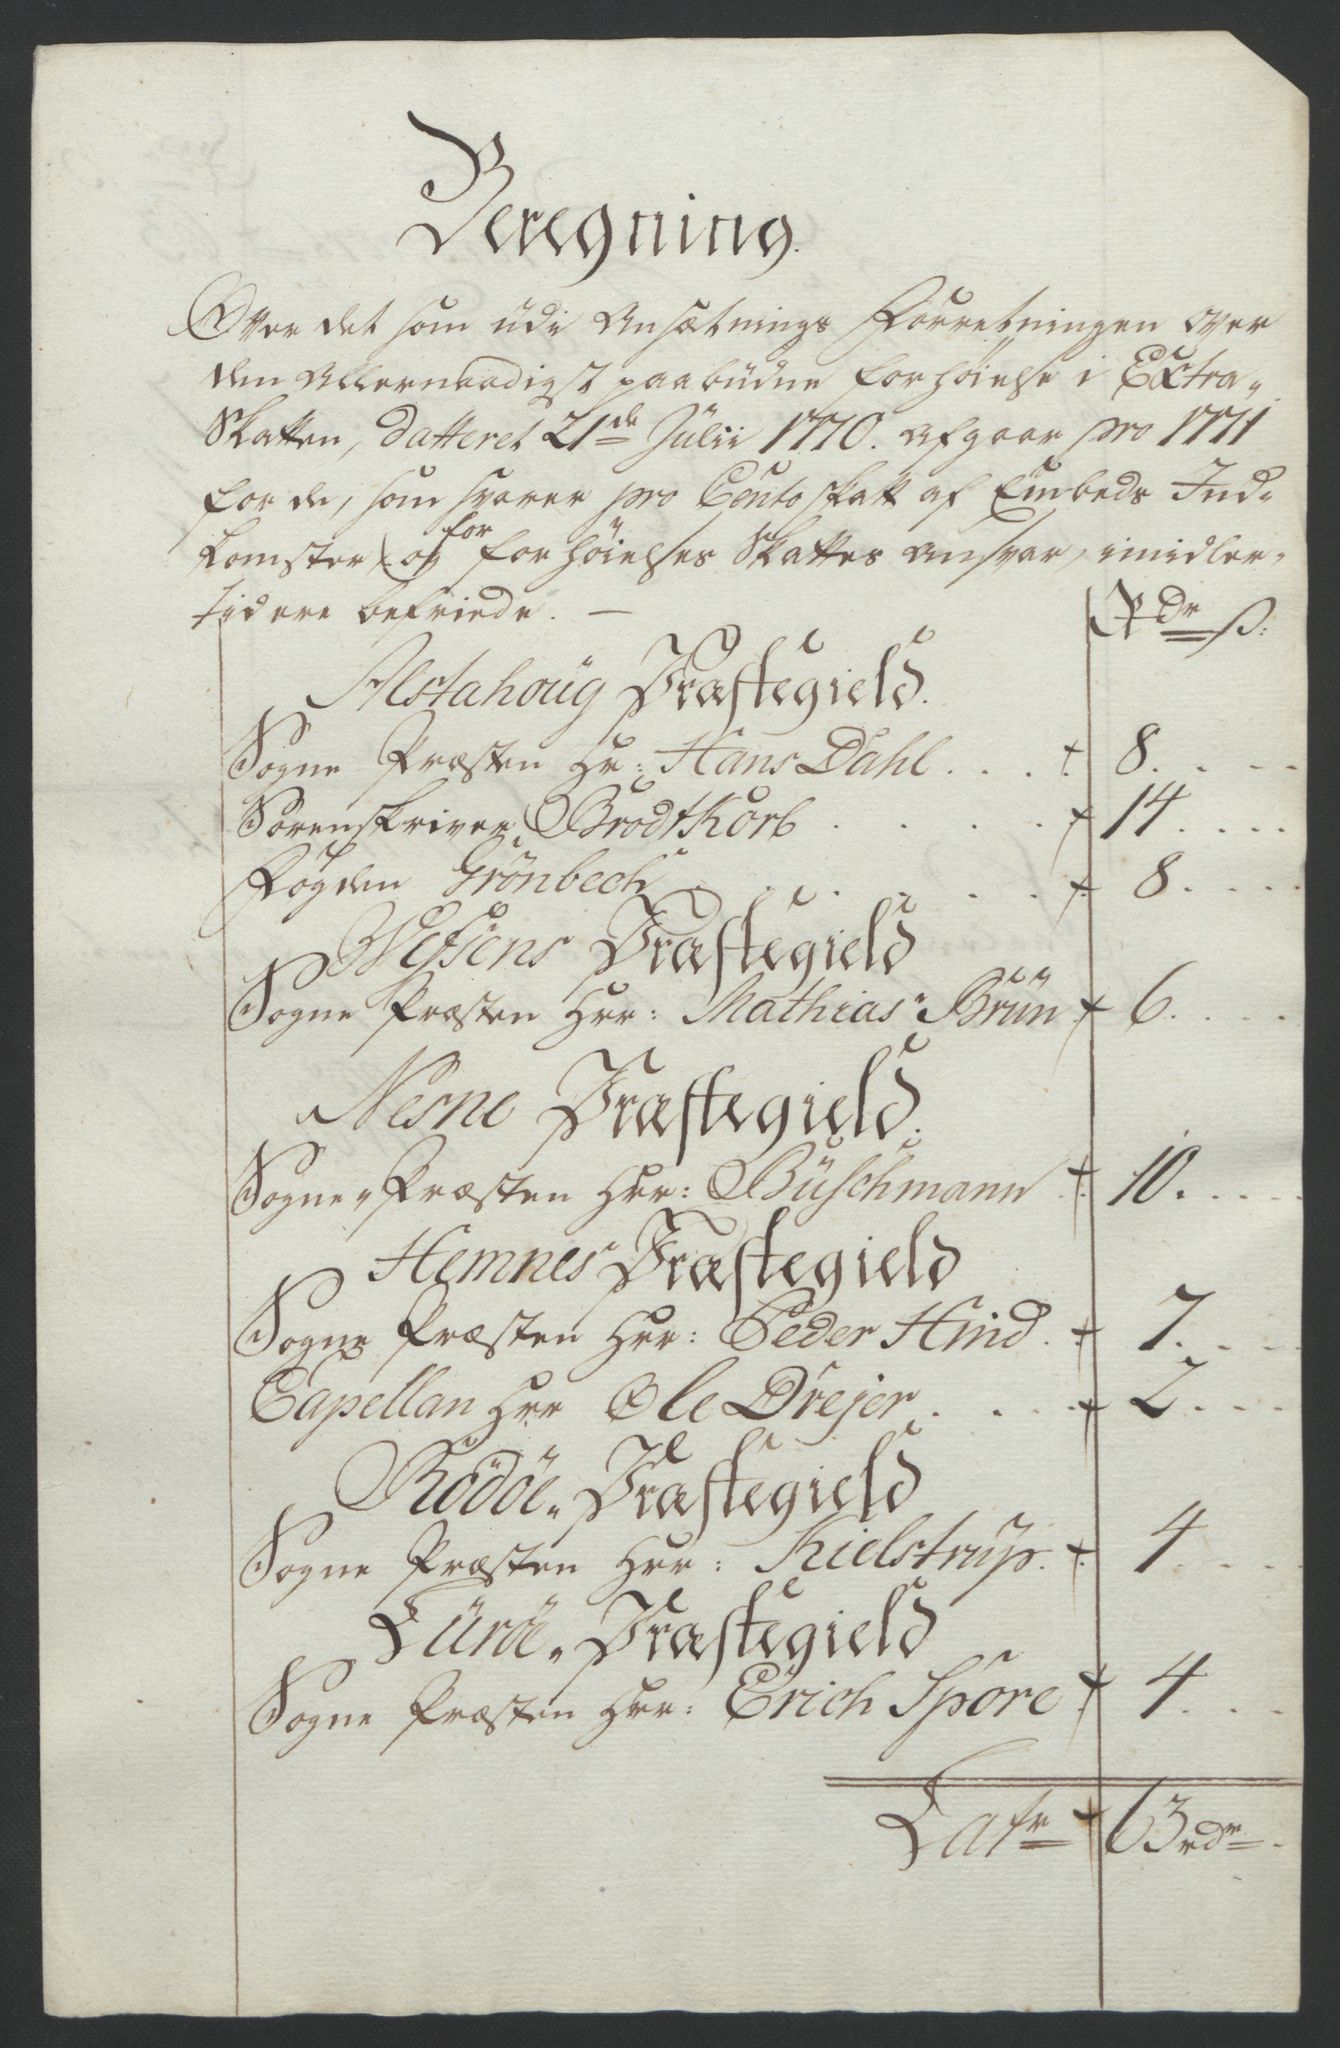 Beregning.
Over det som udi Ansætnings Forretningen over
den Allernaadigst paabudne forhöielse i Extra„
Skatten, datteret 21de Julii 1770. afgaar pro 1771
for de, som svarer pro Cento skatt af Embeds Ind-
komster, og for forhöielses Skattes Ansvar, imidler-
tid ere befriede. —
Rdr ß:
Alstahoug Præstegield.
Sogne Præsten Hr: Hans Dahl . . . 8. . . .
Sorenskriver Brodtkorb . . . . 14. . . .
Fogden Grönbech . . . . . . 8. . . .
Wefsens Præstegield
Sogne Præsten Hrr: Mathias Brün 6. . . .
Nesne Præstegield.
Sogne„Præsten Hrr: Büschmann . 10. . . .
Hemnes Præstegield
Sogne Præsten Hrr: Peder Hind . 7. . . .
Capellan Hrr Ole Drejer . . . . 2. . . .
Rödöe„ Præstegield
Sogne Præsten Hrr: Kielstrup . 4. . . .
Luröe„ Præstegield
Sogne Præsten Hrr: Erich Spore 4. . . .
Latr 63 rdr .